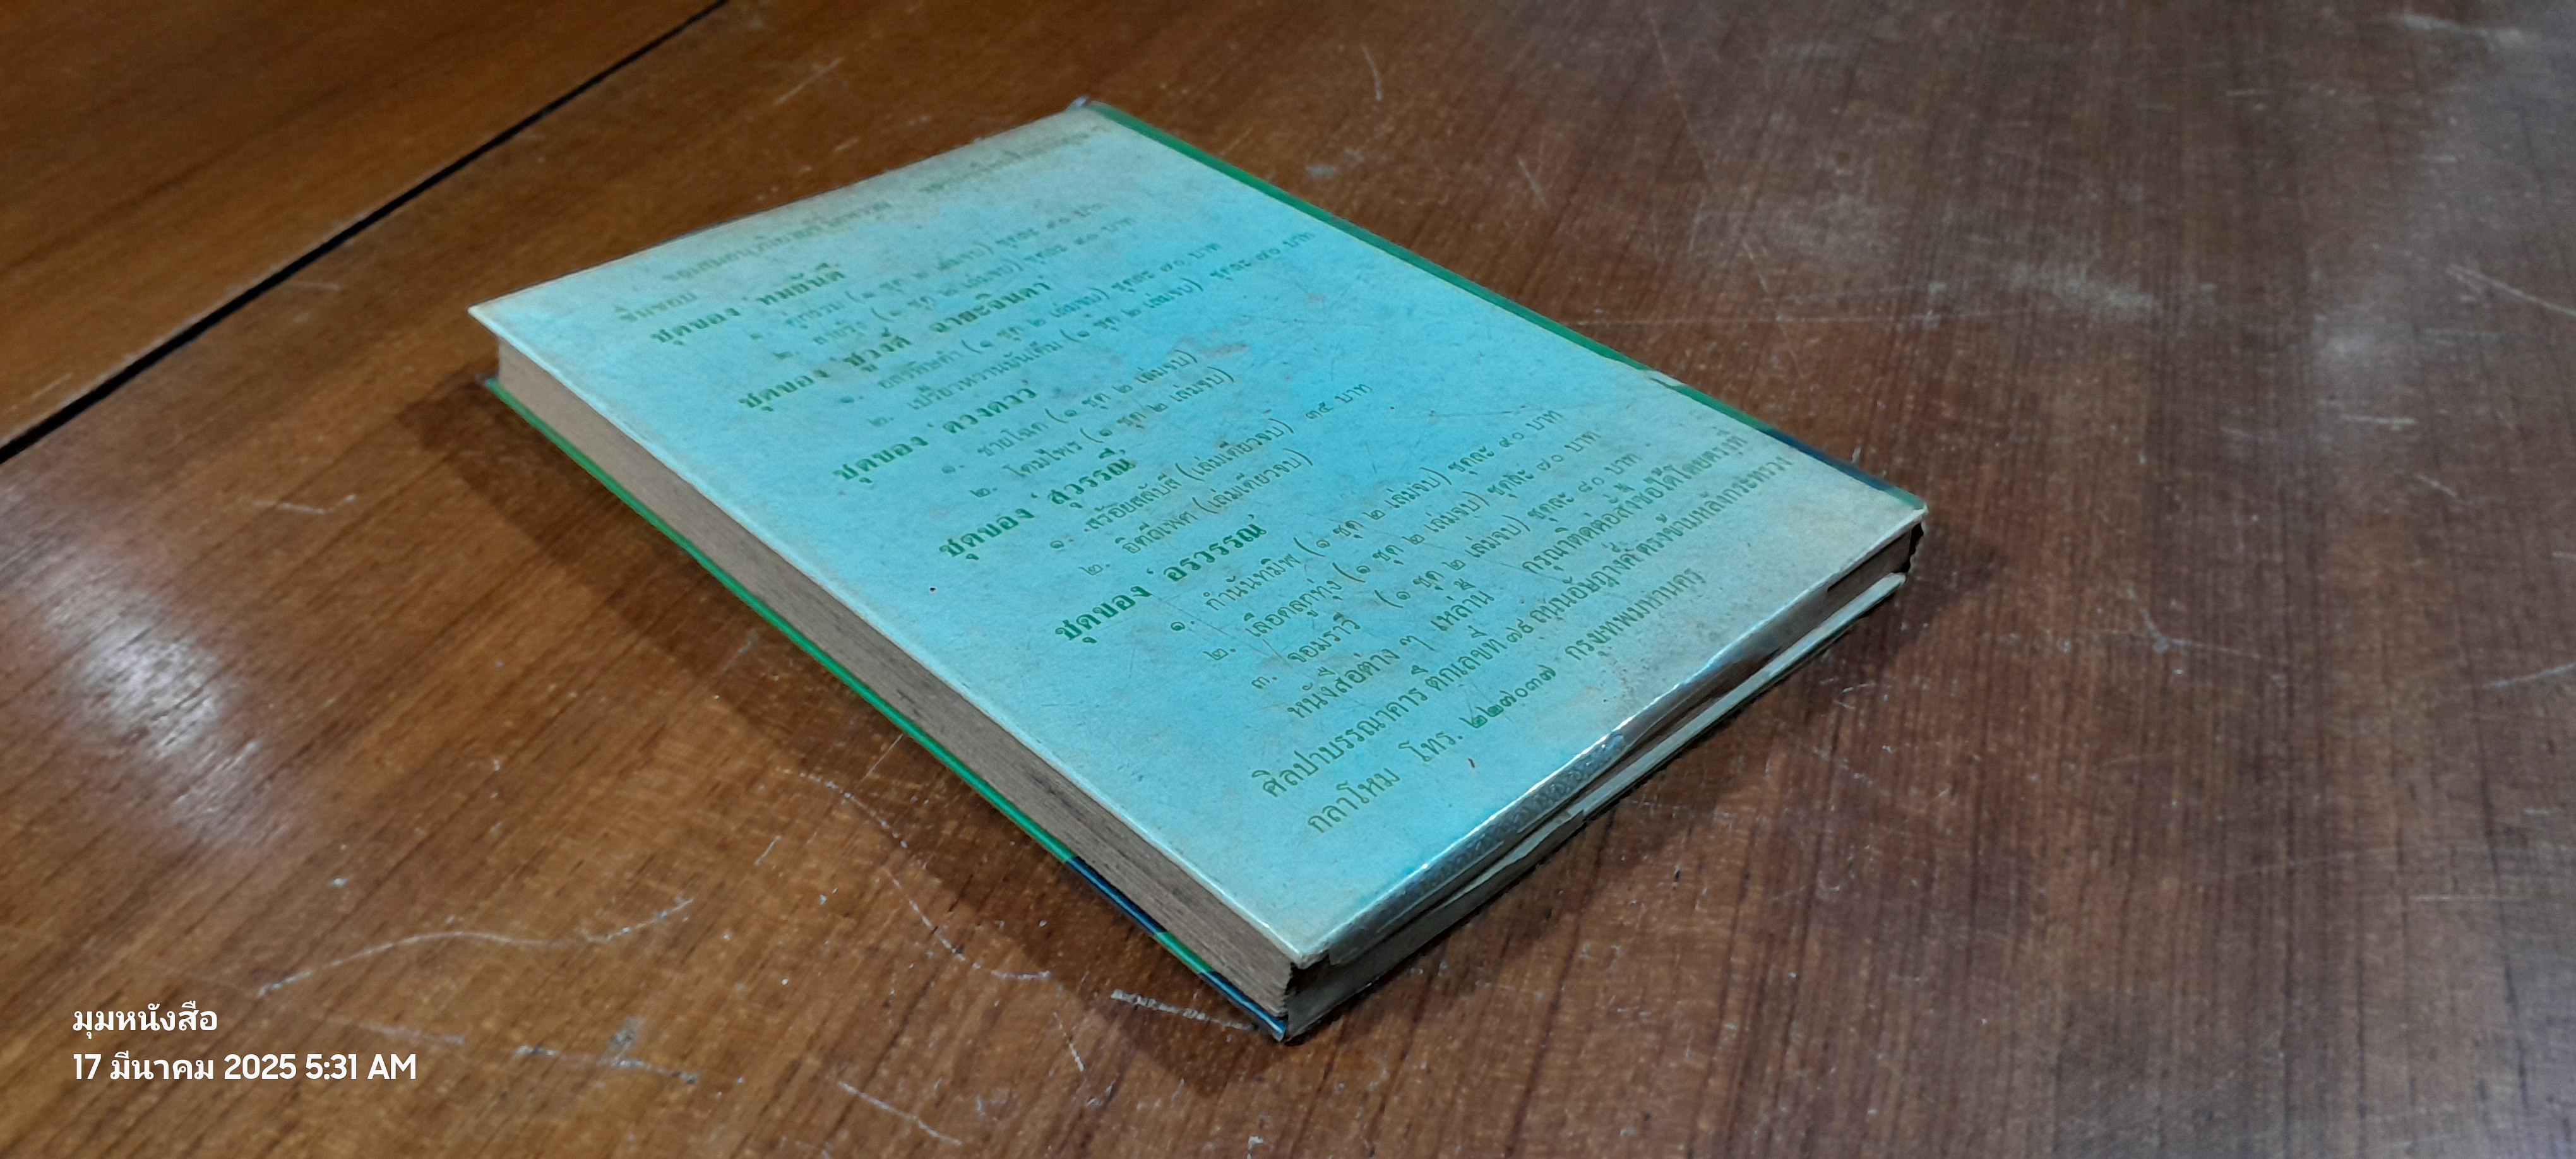 ชุดของ 'ทมยันตี'
(๑ ชุด ๒ เล่มจบ) ชุดละ ๕๐ บาท
๒. (๑ ชุด ๒ เล่มจบ) ชุดละ ๕๐ บาท
ชุดของ 'ชูวงศ์ ฉายะจินดา'
๑. (๑ ชุด ๒ เล่มจบ) ชุดละ ๗๐ บาท
๒. เปรี้ยวหวานมันเค็ม (๑ ชุด ๒ เล่มจบ) ชุดละ ๗๐ บาท
ชุดของ 'ดวงดาว'
๑. ชายโฉด (๑ ชุด ๒ เล่มจบ)
๒. โคมไพร (๑ ชุด ๒ เล่มจบ)
ชุดของ 'สุวรรณี'
๑. สร้อยสลับสี (เล่มเดียวจบ) ๓๕ บาท
๒. อิตถีเพศ (เล่มเดียวจบ)
ชุดของ 'อรวรรณ'
๑. กำนันทมิพ (๑ ชุด ๒ เล่มจบ) ชุดละ ๔๐ บาท
๒. เลือดลูกทุ่ง (๑ ชุด ๒ เล่มจบ) ชุดละ ๗๐ บาท
๓. จอมราวี (๑ ชุด ๒ เล่มจบ) ชุดละ ๘๐ บาท
หนังสือต่าง ๆ เหล่านี้ กรุณาติดต่อสั่งซื้อได้โดยตรงที่
ศิลปาบรรณาคาร ตึกเลขที่ ๗๕ ถนนอัษฎางค์ ตรงข้ามหลังกระทรวง
กลาโหม โทร. ๒๒๗๐๓๗ กรุงเทพมหานคร
มุมหนังสือ
17 มีนาคม 2025 5:31 AM